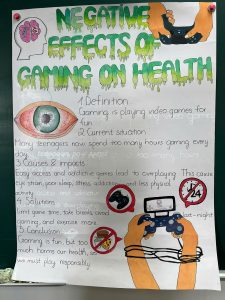 NEGATIVE
EFFECTS OF
GAMING ON HEALTH
1. Definition
Gaming is playing video games for
fun.
2. Current situation
Many teenagers now spend too many hours gaming every
day.
3. Causes & impacts
Easy access and addictive games lead to overplaying. This causes
eye strain, poor sleep, stress, addiction, and less physical
activity.
4. Solutions
Limit game time, take breaks, avoid
late-night
gaming, and exercise more.
5. Conclusion
Gaming is fun, but too
much harms our health, so
we must play responsibly.
24